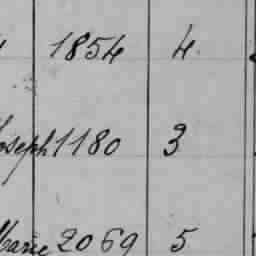 1854 4
Joseph 1180 3
Marie 2069 5